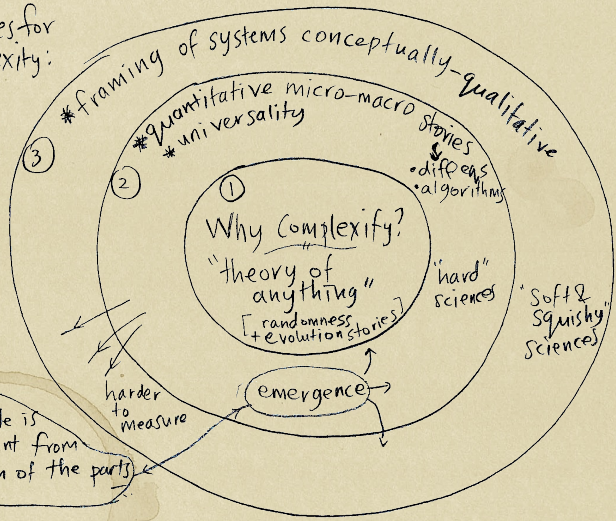 es for
exity:
*framing of systems conceptually-qualitative
*quantitative micro-macro stories
*universality
• diff eqs
• algorithms
3
2
1
Why Complexify?
"theory of
anything"
[randomness
+ evolution stories]
"hard"
sciences
"soft &
squishy"
sciences
harder
to
measure
emergence
le is
nt from
m of the parts